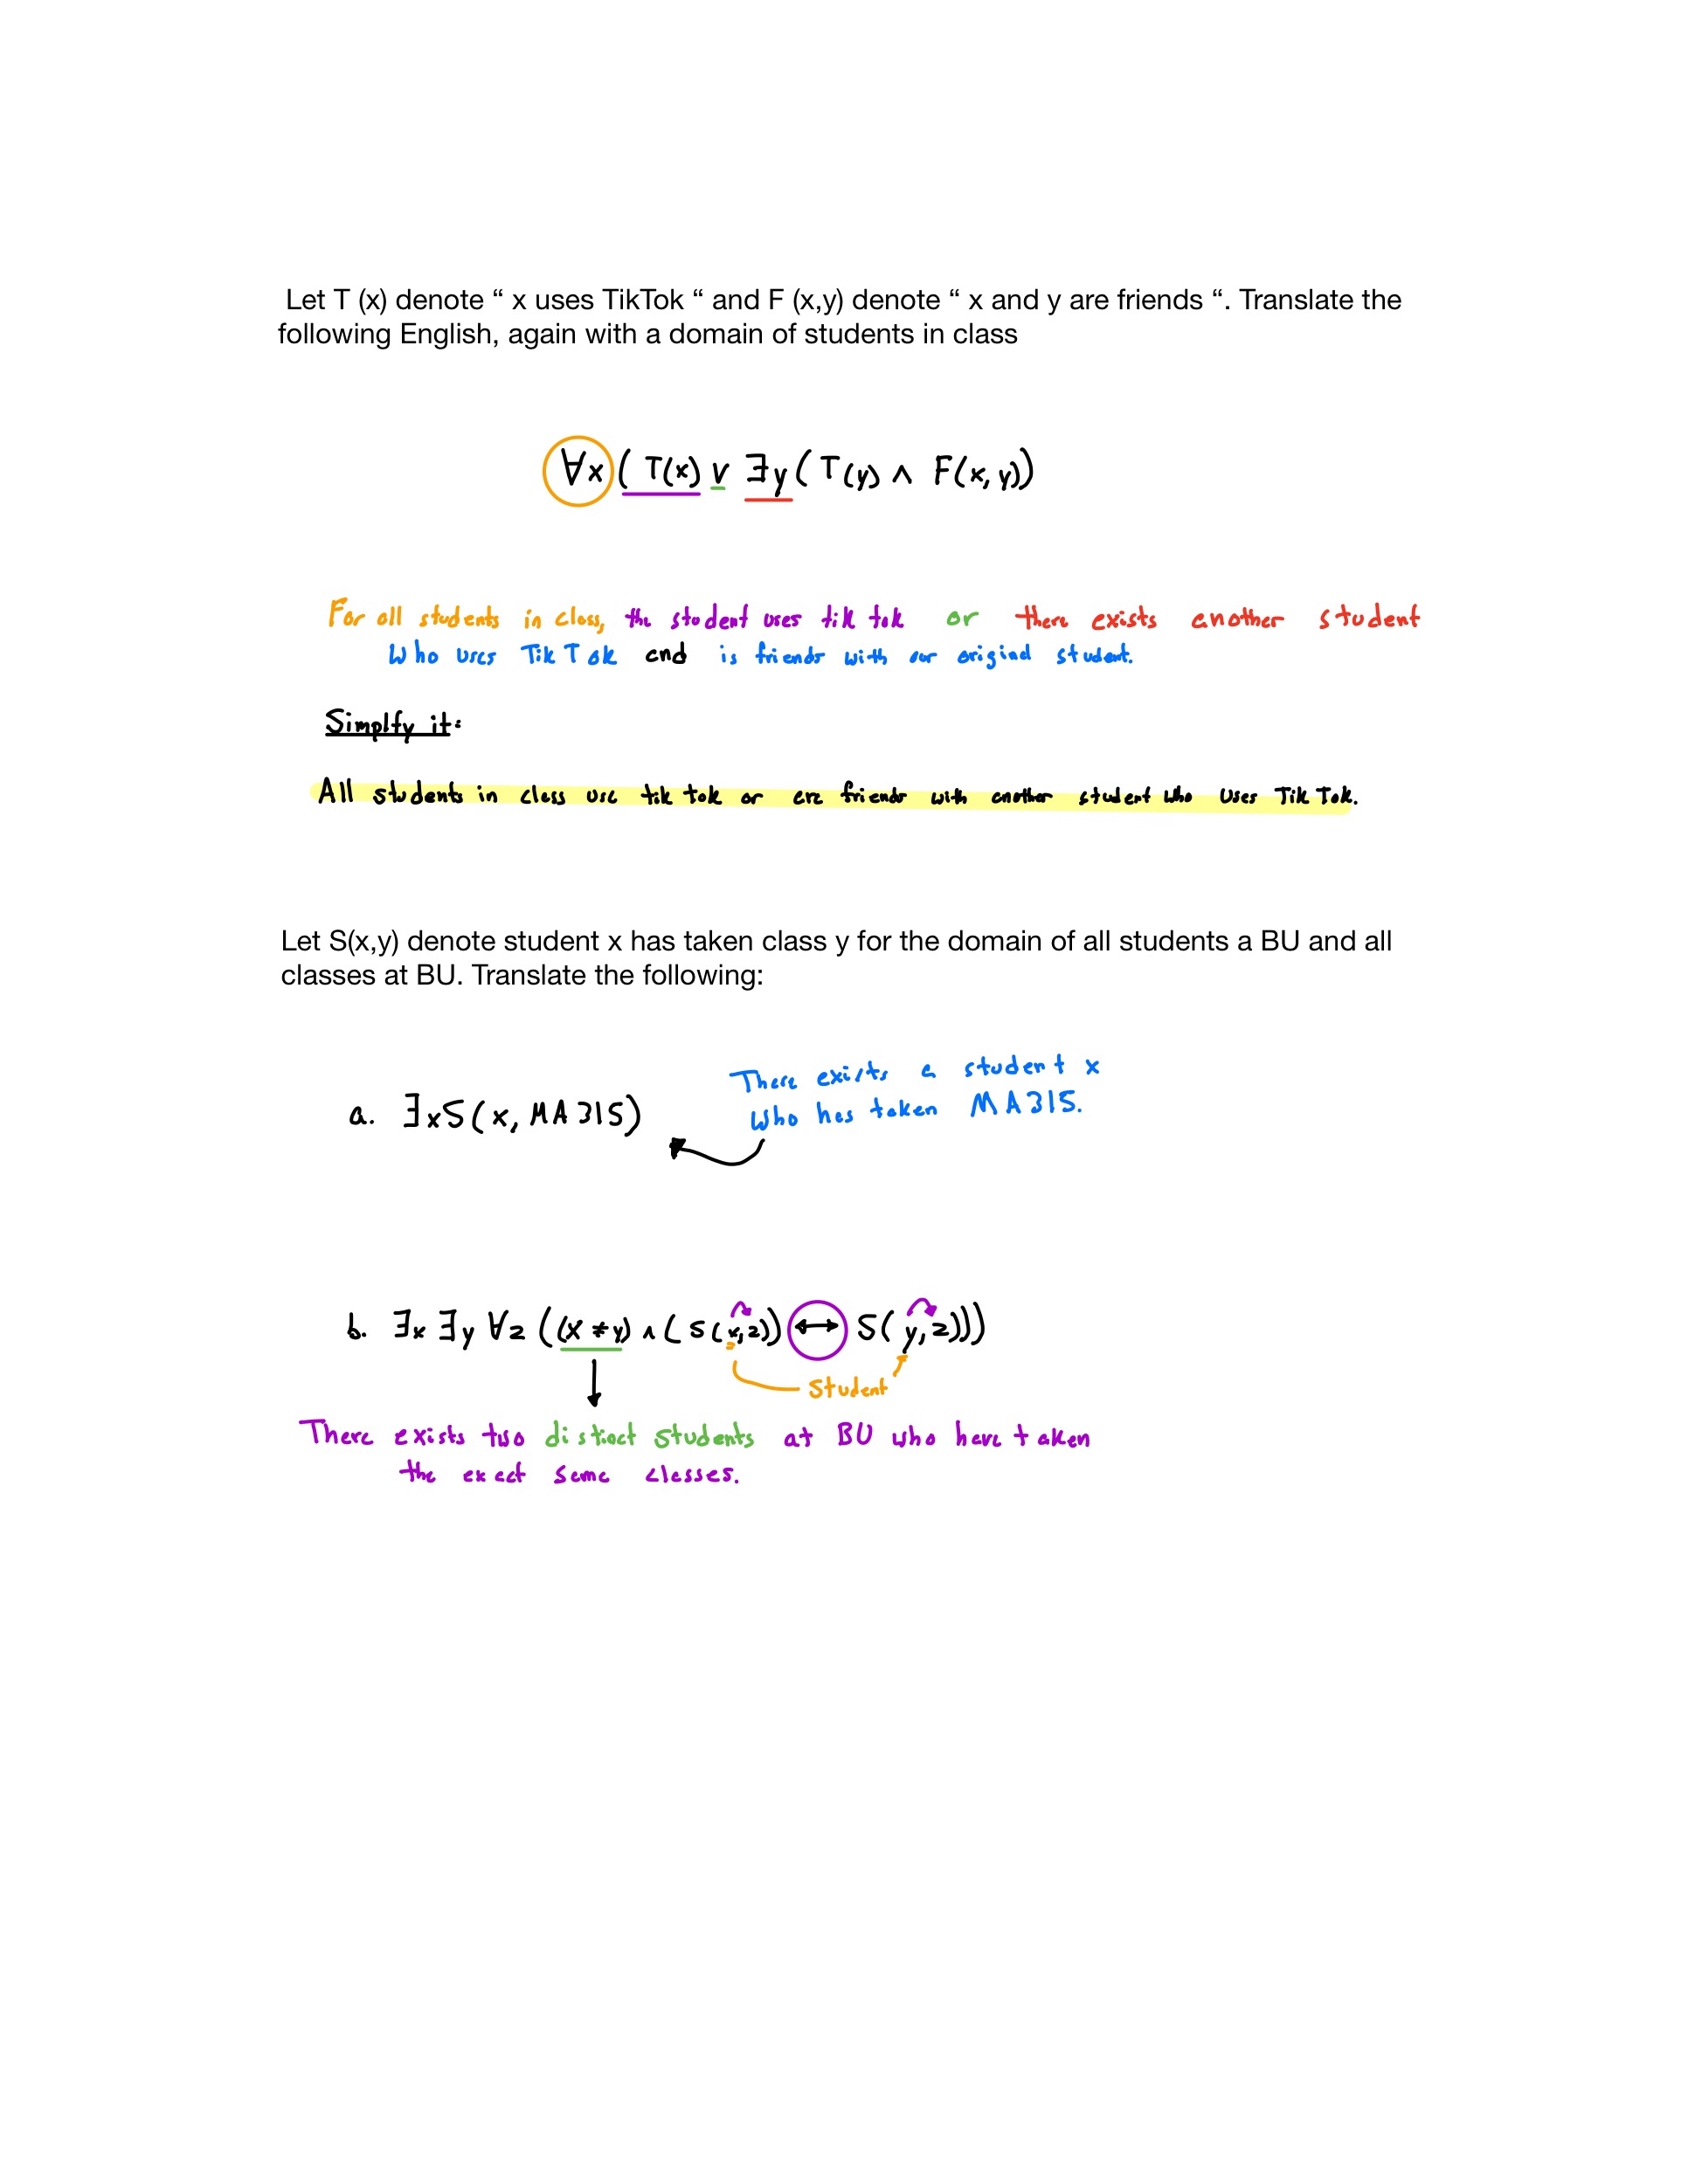 Let T (x) denote “ x uses TikTok “ and F (x,y) denote “ x and y are friends “. Translate the
following English, again with a domain of students in class
∀x ( T(x) ∨ ∃y ( T(y) ∧ F(x, y))
For all students in class, the student uses tik tok or there exists another student
who uses TikTok and is friends with our original student.
Simplfy it:
All students in class use tik tok or are friends with another student who uses TikTok.
Let S(x,y) denote student x has taken class y for the domain of all students a BU and all
classes at BU. Translate the following:
There exists a student x
a. ∃xS(x, MA315)
who has taken MA315.
b. ∃x ∃y ∀z ((x ≠ y) ∧ (S(x,z)) ↔ S(y,z)))
student
There exists two distinct students at BU who have taken
the exact same classes.